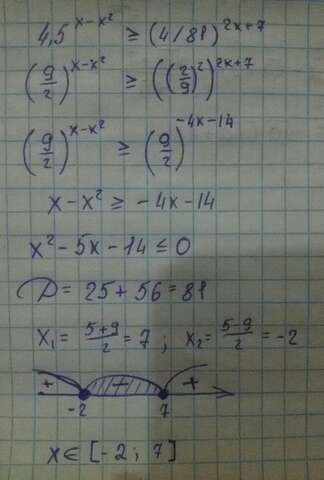 4,5^(x-x²) ≥ (4/81)^(2x+7)
(9/2)^(x-x²) ≥ ((2/9)²)^(2x+7)
(9/2)^(x-x²) ≥ (9/2)^(-4x-14)
x-x² ≥ -4x-14
x²-5x-14 ≤ 0
D = 25+56 = 81
x₁ = (5+9)/2 = 7 ; x₂ = (5-9)/2 = -2
+ - +
-2 7
x ∈ [-2; 7]